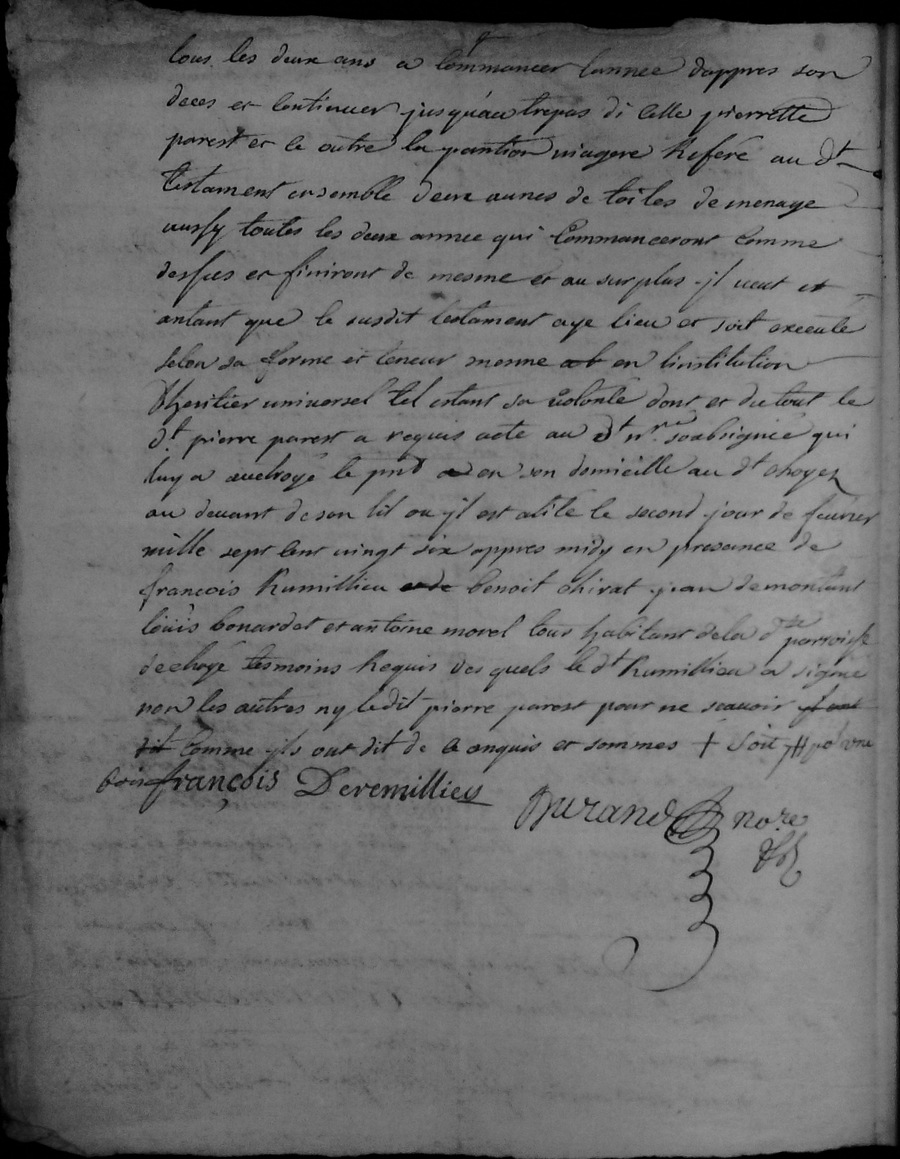 tous les deux ans a Commancer lannee dappres son
deces et Continuer jusqu'au trepas di Celle pierrette
parest et ce outre la pantion viagere Referé au dt
testament ensemble deux aunes de toiles de menage
aussy toutes les deux annee qui Commanceront Comme
dessus et finiront de mesme et au surplus jl veut et
antant que le susdit testament aye lieu et soit executé
selon sa forme et teneur mesme en linstitution
dheritier universel tel estant sa volonté dont et du tout le
dt pierre parest a requis acte au dt nre soubsignée qui
luy a auctroyé le pnt en son domicille au dt choyez
au devant de son lit ou jl est alité le second jour de feuvrier
mille sept Cent vingt six appres midy en presance de
françois Rumillieu benoit Chirat jean demontant
loüis bonardet et antoine morel tous habitant de la dte parroisse
de choyé tesmoins Requis des quels le dt Rumillieu a signé
non les autres ny ledit pierre parest pour ne scavoir
dit Comme ils ont dit de ce anquis et sommes + soit
françois Deremillieu
Durand nore